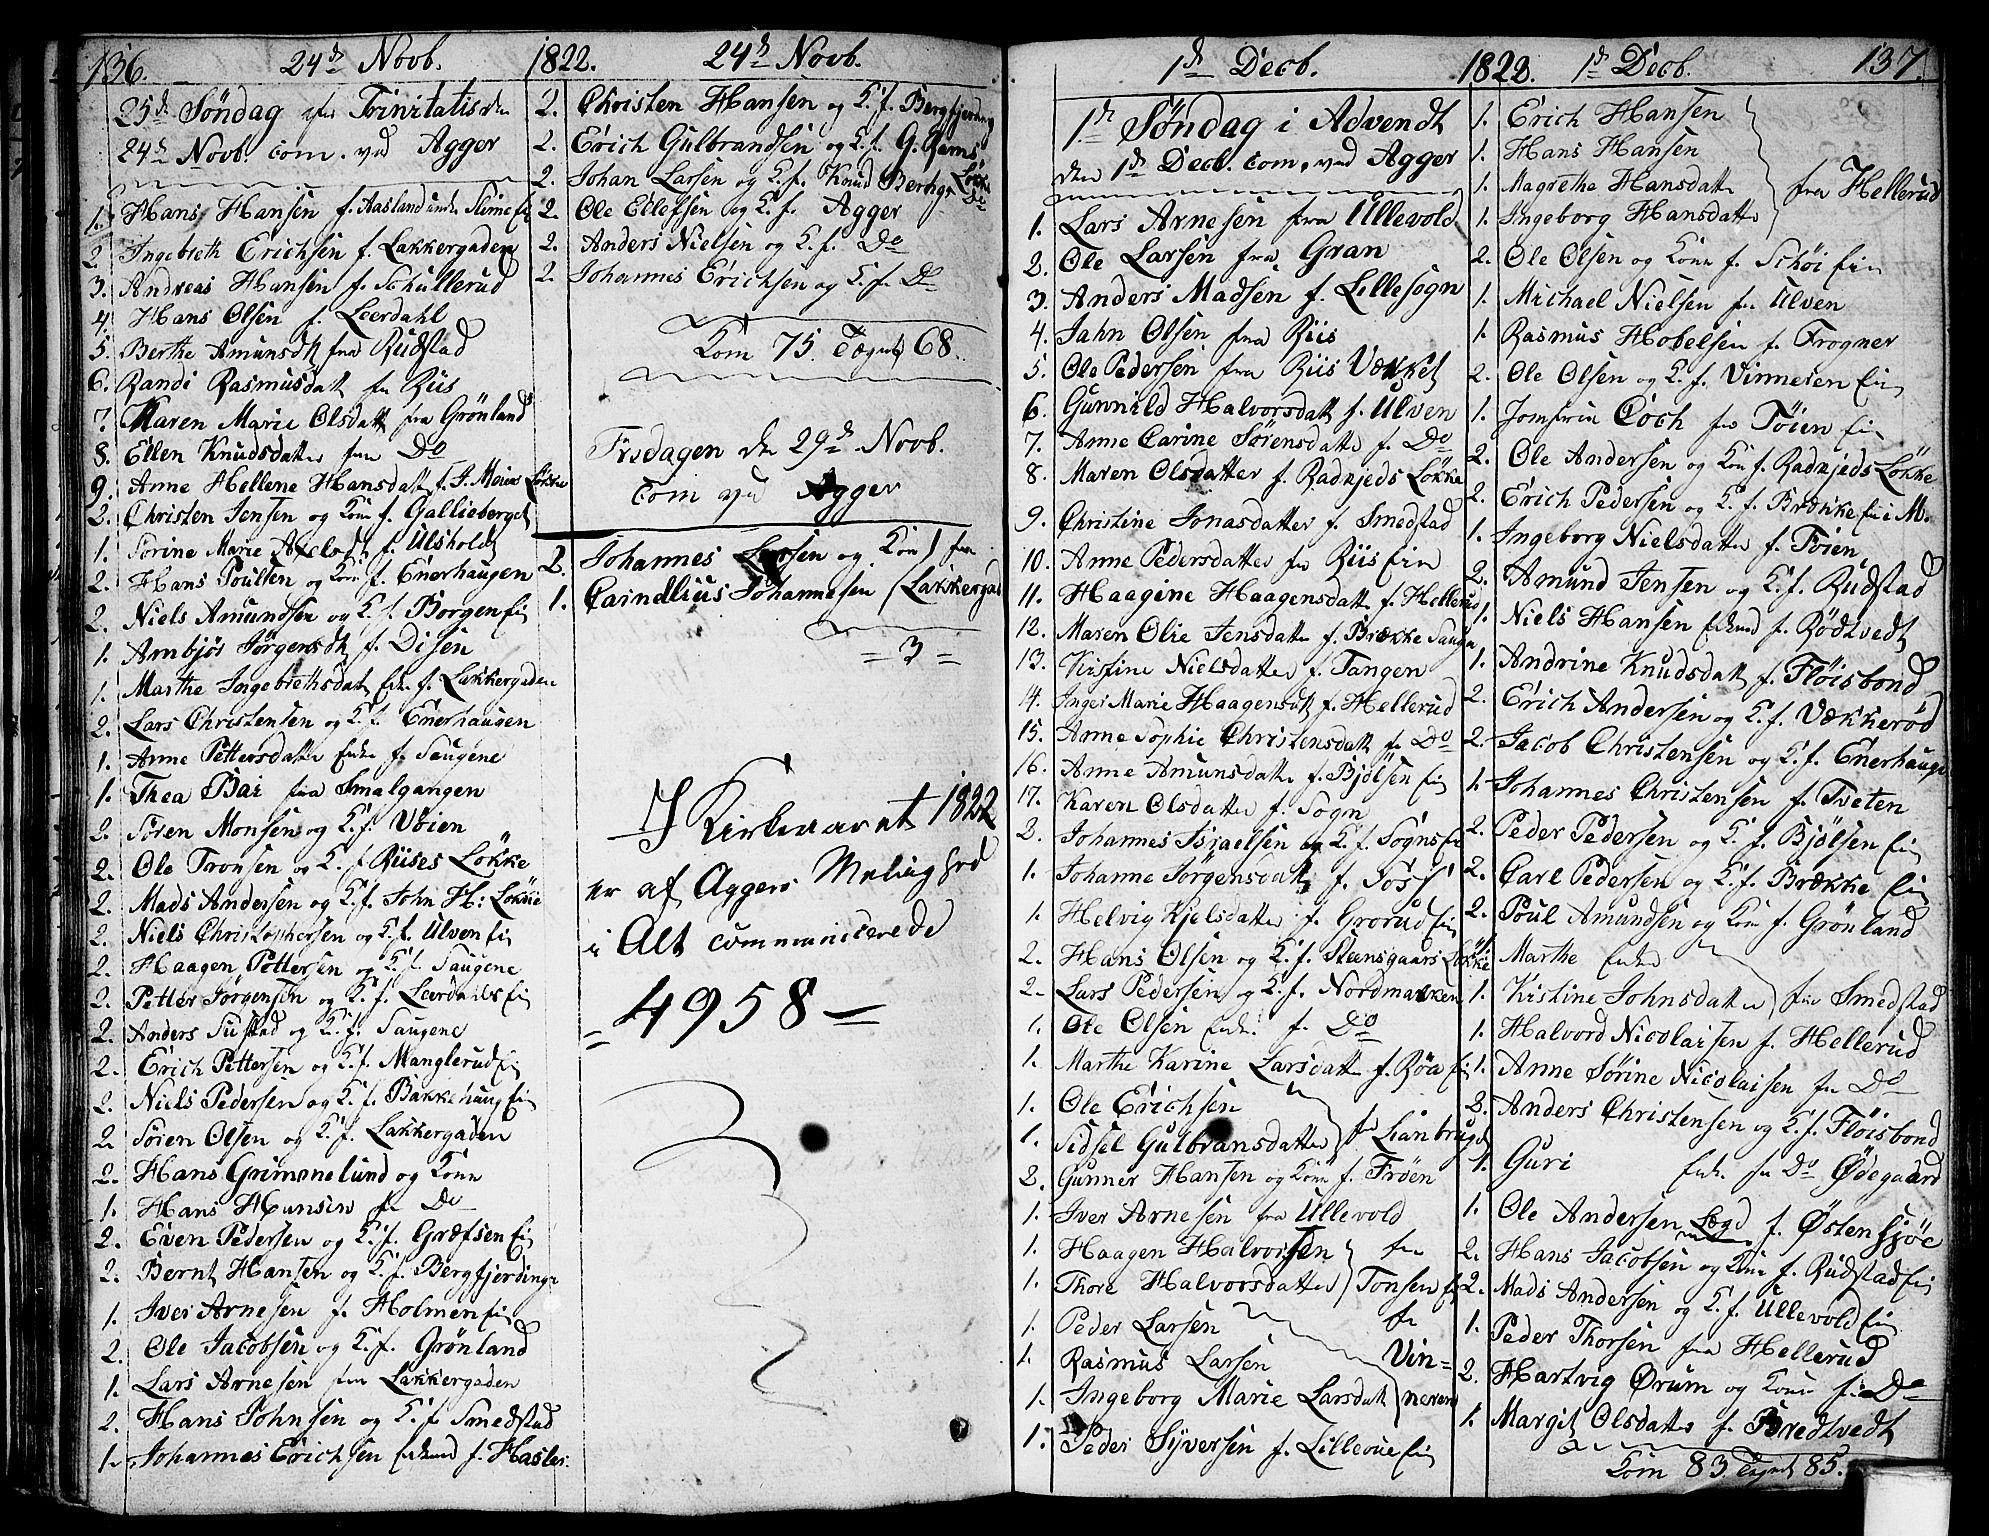 136. 24de Novb. 1822. 24de Novb.
25de Søndag efter Trinitatis den
24de Novb. com. ved Agger
1. Hans Hansen f. Aasland
2. Ingebreth Erichsen f. Lakkergaden
3. Andreas Hansen f. Schullerud
4. Hans Olsen f. Leerdahl
5. Berthe Amunsdt fra Rudstad
6. Randi Rasmusdatt fr Riis
7. Karen Marie Olsdatt fra Grönland
8. Ellen Knudsdatter fra Do
9. Anne Hellene Hansdatt f. J. Meiers Løkke
2. Christen Jensen og Kone f. Gallieberget
1. Sørine Marie Axelsdt f. Ulsholdt
2. Hans Poulsen og Kone f. Enerhaugen
2. Niels Amundsen og K. f. Borgen Ei
1. Ambjör Jørgensdt f. Disen
1. Marthe Ingebrethsdat Enke f. Lakkergaden
2. Lars Christensen og K. f. Enerhaugen
1. Anne Pettersdatter Enke f. Saugene
1. Thea Bar fra Smalgangen
2. Søren Monsen og K. f. Vøien
2. Ole Tronsen og K. f. Riises Løkke
2. Mads Andersen og K. f. John H: Løkke
2. Niels Christophersen og K. f. Ulven Ei
2. Haagen Pettersen og K. f. Saugene
2. Petter Jørgensen og K. f. Leerdals Ei
2. Anders Sustad og K. f. Saugene
2. Erich Pettersen og K. f. Manglerud Ei
2. Niels Pedersen og K. f. Bakkehaug Ei
2. Søien Olsen og K. f. Lakkergaden
2. Hans Grimmelund og Kone
1. Hans Hansen fr Do
2. Even Pedersen og K. f. Græfsen Ei
2. Bernt Hansen og K. f. Bergfjerdingn
1. Iver Arnesen f. Holmen Ei
2. Ole Jacobsen og K. f. Grönland
1. Lars Arnesen fra Lakkergaden
2. Hans Johnsen og K. f. Smedstad
1. Johannes Erichsen Enkemd f. Hasler
2. Christen Hansen og K. f. Bergfjerding
2. Erich Gulbrandsen og K. f. G. Rams Løkke
2. Johan Larsen og K. f. Knud Berhgs Do
2. Ole Ellefsen og K. f. Agger
2. Anders Nielsen og K. f. Do
2. Johannes Erichsen og K. f. Do
Kom 75. Tegnet 68.
Fredagen den 29de Novb.
com ved Agger
2. Johannes Larsen og Kone } fra
1. Carndlius Johannesen } Lakkergad
= 3 =
I Kirkeaaret 1822
er af Aggers Menighed
i Alt communicerede
= 4958 =
1de Decb. 1822. 1de Decb. 137.
1te Søndag i Advendt
den 1de Decb. com. ved Agger
1. Lars Arnesen fra Ullevold
2. Ole Larsen fra Gran
3. Anders Madsen f. Lillesogn
4. Jahn Olsen fra Riis
5. Ole Pedersen fra Riis Vækket
6. Gunnild Halvorsdatt f. Ulven
7. Anne Carine Sørensdatter f. Do
8. Maren Olsdatter f. Radkjeds Løkke
9. Christine Jonasdatter f. Smedstad
10. Anne Pedersdatter fra Riis Ein
11. Haagine Haagensdatt f. Hellerud
12. Maren Olie Jensdatter f. Brække Saugen
13. Kistine Nielsdatter f. Tangen
14. Inger Marie Haagensdt f. Hellerud
15. Anne Sophie Christensdatt fr Do
16. Anne Amunsdatter f. Bjølsen Ei
17. Karen Olsdatter f. Sogn
2. Johannes Israelsen og K. f. Sogns Ei
1. Johanne Jørgensdatt f. Foss
1. Helvig Kjelsdatter f. Grorud Ei
2. Hans Olsen og K. f. Steensgaars Løkke
2. Lars Pedersen og K. f. Nordmarken
1. Ole Olsen Enkm. f. Do
1. Marthe Karine Larsdatter f. Røa Ei
1. Ole Erichsen
1. Sidsel Gulbransdatter } fr Lianbruget
2. Gunner Hansen og Kone f. Frøen
1. Iver Arnesen fra Ullevold
1. Haagen Halvorsen } fra
1. Thore Halvorsdatter } Tonsen Ei
1. Peder Larsen fr
1. Rasmus Larsen Vin=
1. Ingeborg Marie Larsdatt } neren
1. Peder Syversen f. Lillevue Ei
1. Erich Hansen
1. Hans Hansen
1. Magrethe Hansdatter } fra Hellerud
1. Ingeborg Hansdatter
2. Ole Olsen og Kone f. Schøi Ein
1. Michael Nielsen fr Ulven
1. Rasmus Hobelsen f. Frogner
2. Ole Olsen og K. f. Vinneren Ei
1. Jomfrue Coch fra Tøien Ei
2. Ole Andersen og Kone f. Radkjeds Løkke
2. Erich Pedersen og K. f. Brække Ei i M.
1. Ingeborg Nielsdatter f. Tøien
2. Amund Jensen og K. f. Rudstad
1. Niels Hansen Enkmd f. Rødtvedt
1. Andrine Knudsdatt f. Fløisbond
2. Erich Andersen og K. f. Vækkerød
2. Jacob Christensen og K. f. Enerhaugn
1. Johannes Christensen f. Tveten
2. Peder Pedersen og K. f. Bjølsen Ei
2. Carl Pedersen og K. f. Brække Ei
2. Poul Amundsen og Kone f. Grönland
1. Marthe Enke
1. Kistine Johnsdatter } fra Smedstad
1. Halvord Nicolaisen f. Hellerud
1. Anne Sørine Nicolaisen fr Do
2. Anders Christensen og K. f. Fløisbond
1. Guri Enke fra Do Ødegaard
1. Ole Andersen Lægd f. Østensjøe
2. Hans Jacobsen og Kone f. Rudstad Ei
2. Mads Andersen og K. f. Ullevold Ein
1. Peder Thorsen fra Hellerud
2. Hartvig Ørum og Kone fr Do
1. Margit Olsdatter f. Bredtvedt
Kom 83. Tegnet 85.